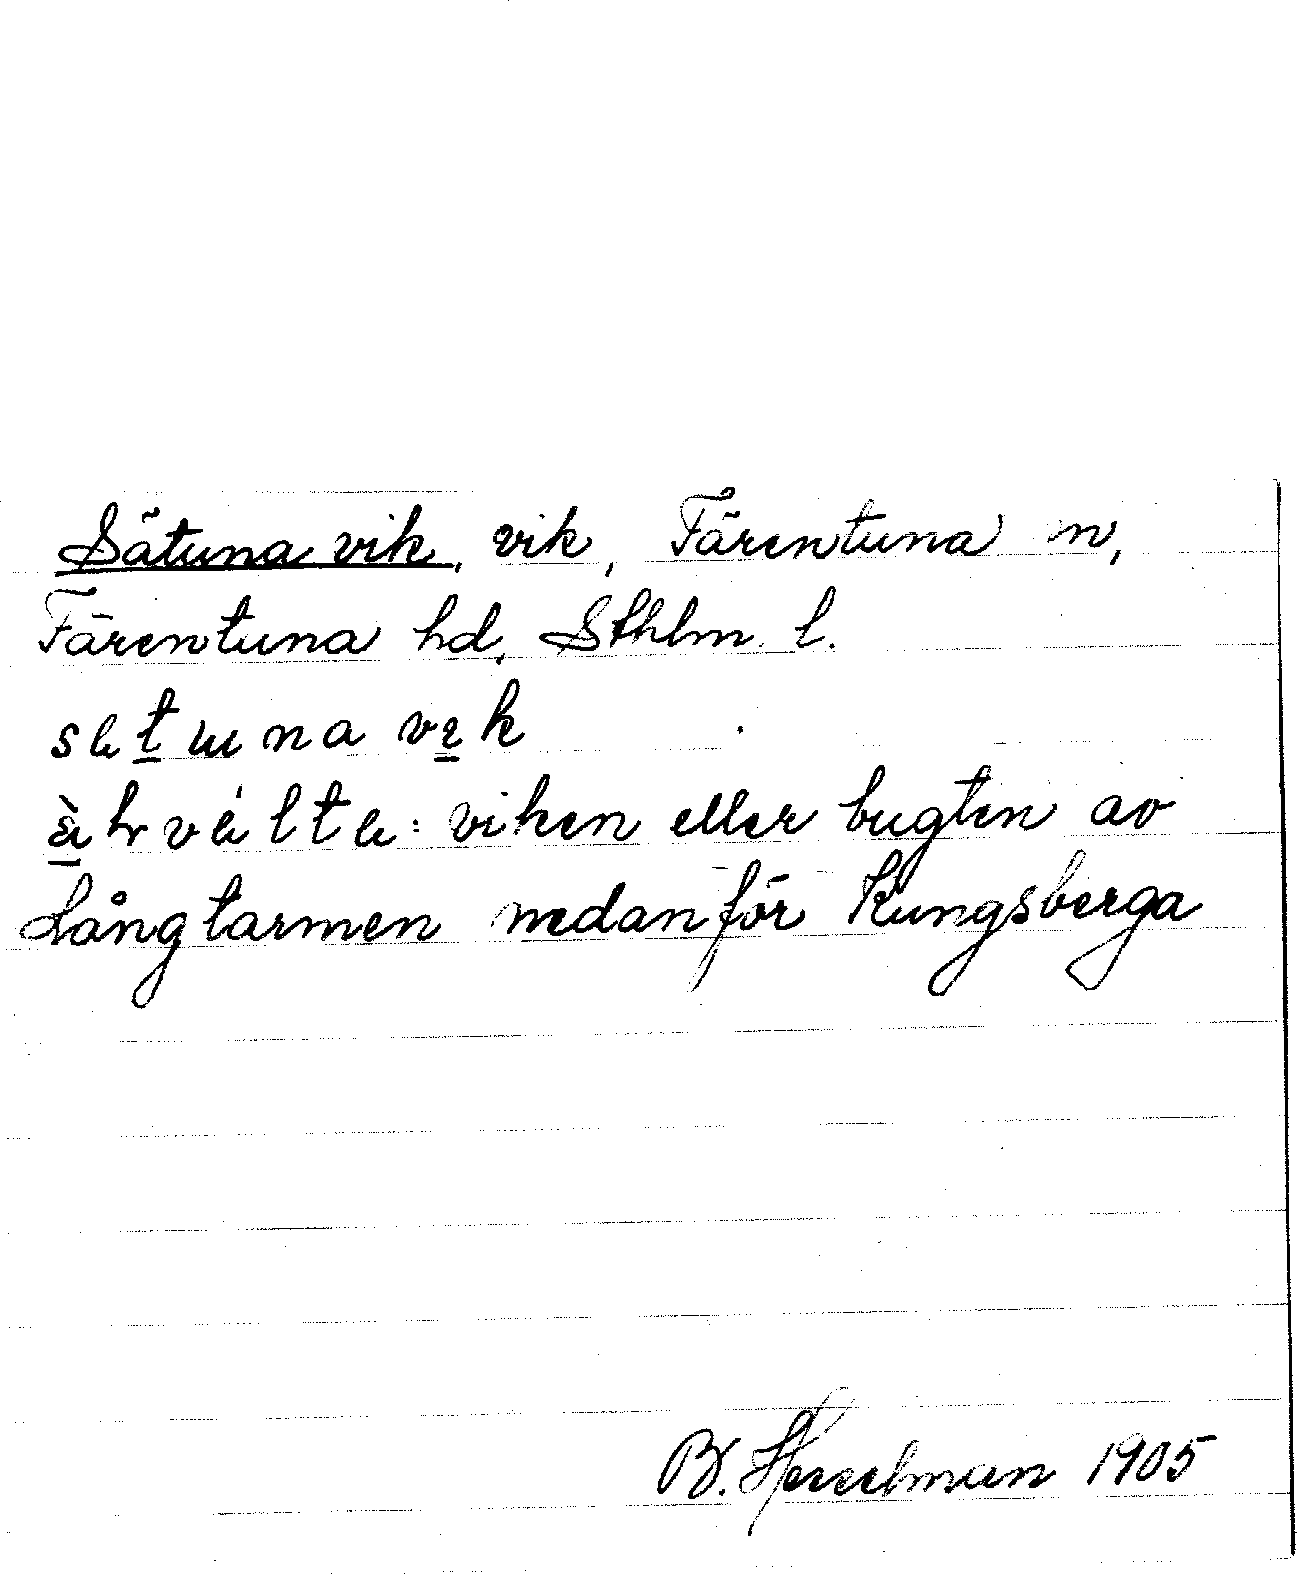 Sätuna vik, vik, Färentuna sn,
Färentuna hd, Sthlm. l.
viken eller bugten av
Långtarmen nedanför Kungsberga
B. Hesselman 1905